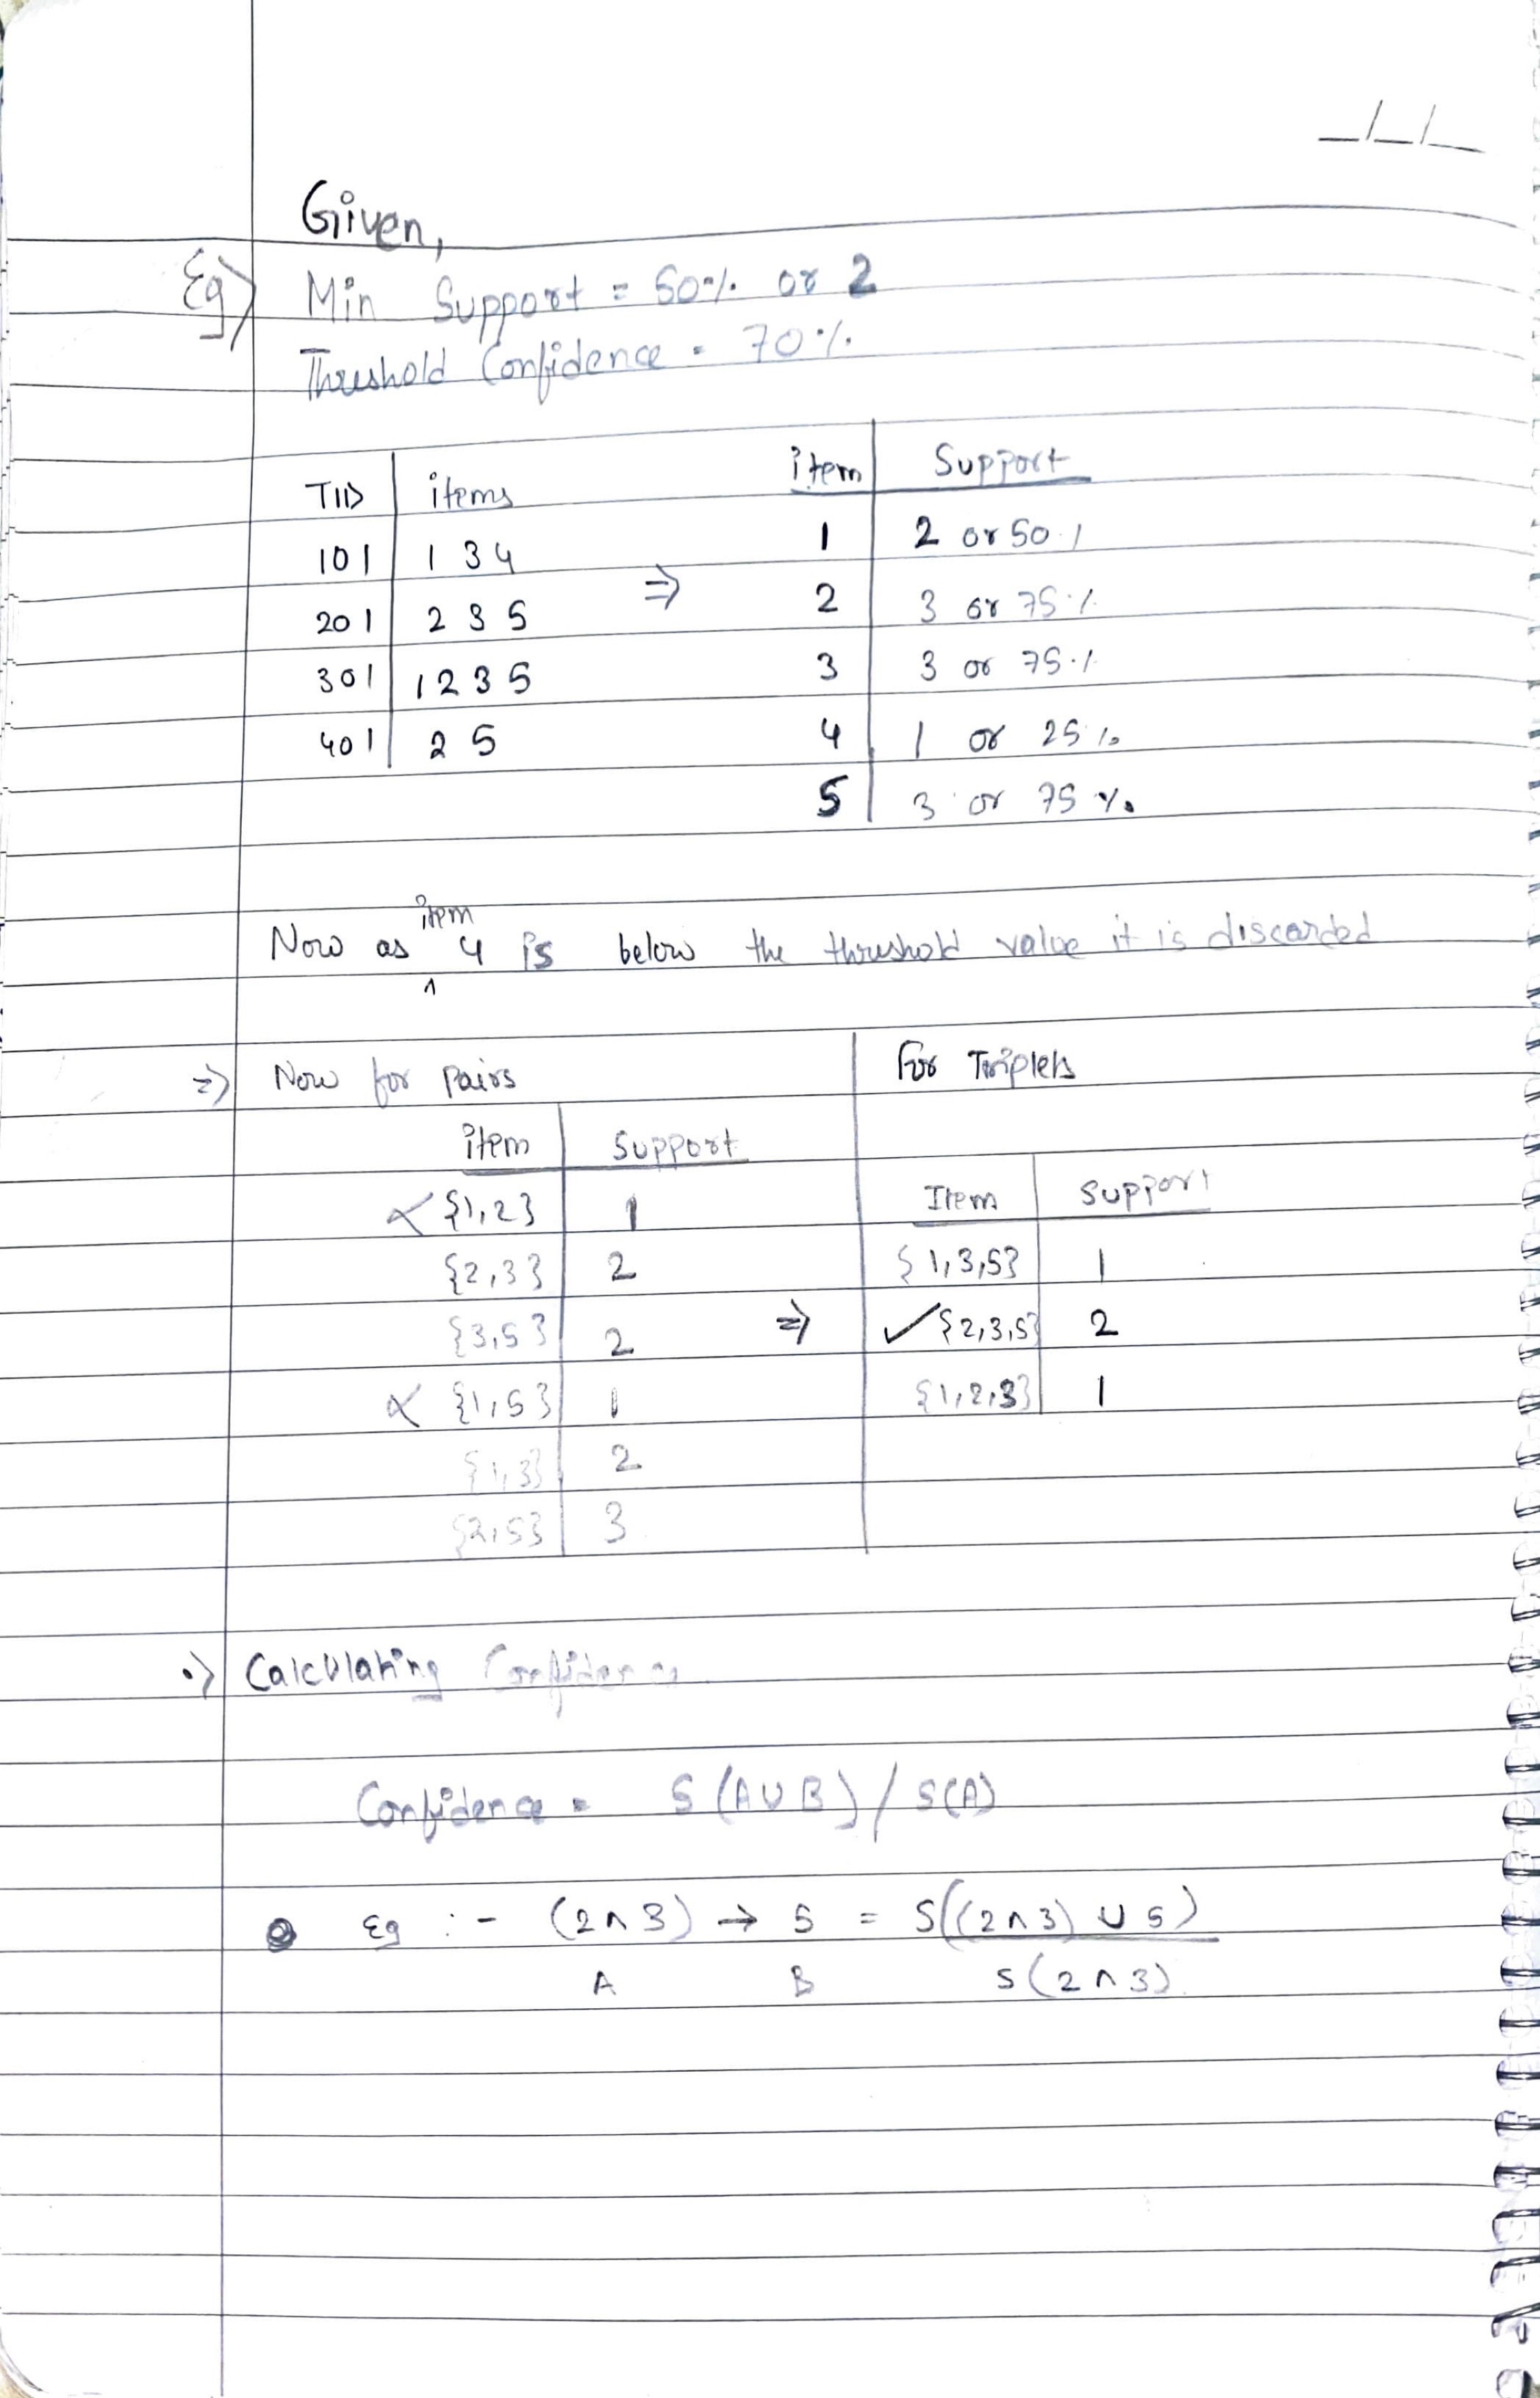 _/_/_
Given,
Eg) Min Support = 50% or 2
Threshold Confidence = 70%
TID items
101 1 3 4
201 2 3 5
301 1 2 3 5
401 2 5
⇒
item Support
1 2 or 50%
2 3 or 75%
3 3 or 75%
4 1 or 25%
5 3 or 75%
Now as item 4 is below the threshold value it is discarded
⇒) Now for Pairs
item Support
× {1,2} 1
{2,3} 2
{3,5} 2
× {1,5} 1
{1,3} 2
{2,5} 3
⇒
For Triplets
Item Support
{1,3,5} 1
✓ {2,3,5} 2
{1,2,3} 1
•) Calculating Confidence
Confidence = S(A∪B) / S(A)
Eg :- (2∧3) → 5 = S((2∧3) ∪ 5)
A B S(2∧3)